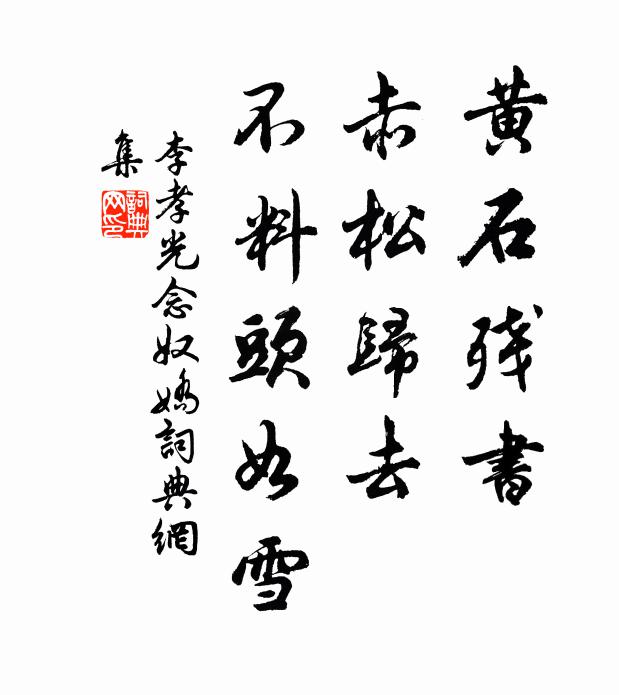 黄石残書
赤松歸去
不料頭如雪
李孝光念奴嬌詞典網
集
詞典
网印